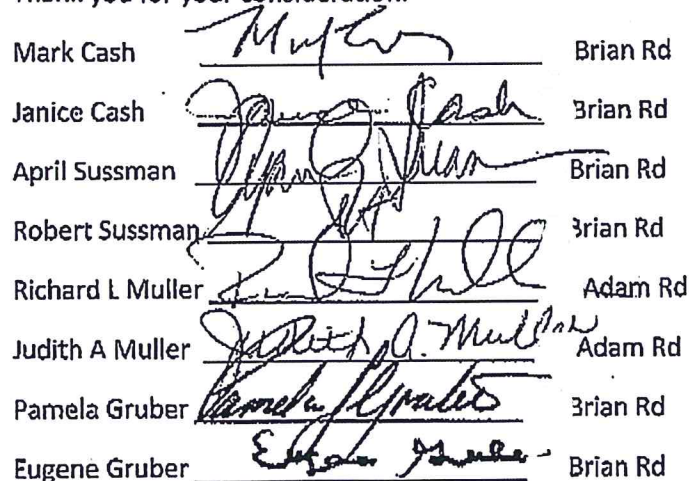 Thank you for your consideration.
Mark Cash Brian Rd
Janice Cash Janice Cash Brian Rd
April Sussman Brian Rd
Robert Sussman Brian Rd
Richard L Muller Adam Rd
Judith A Muller Judith A. Muller Adam Rd
Pamela Gruber Pamela Gruber Brian Rd
Eugene Gruber Eugene Gruber Brian Rd